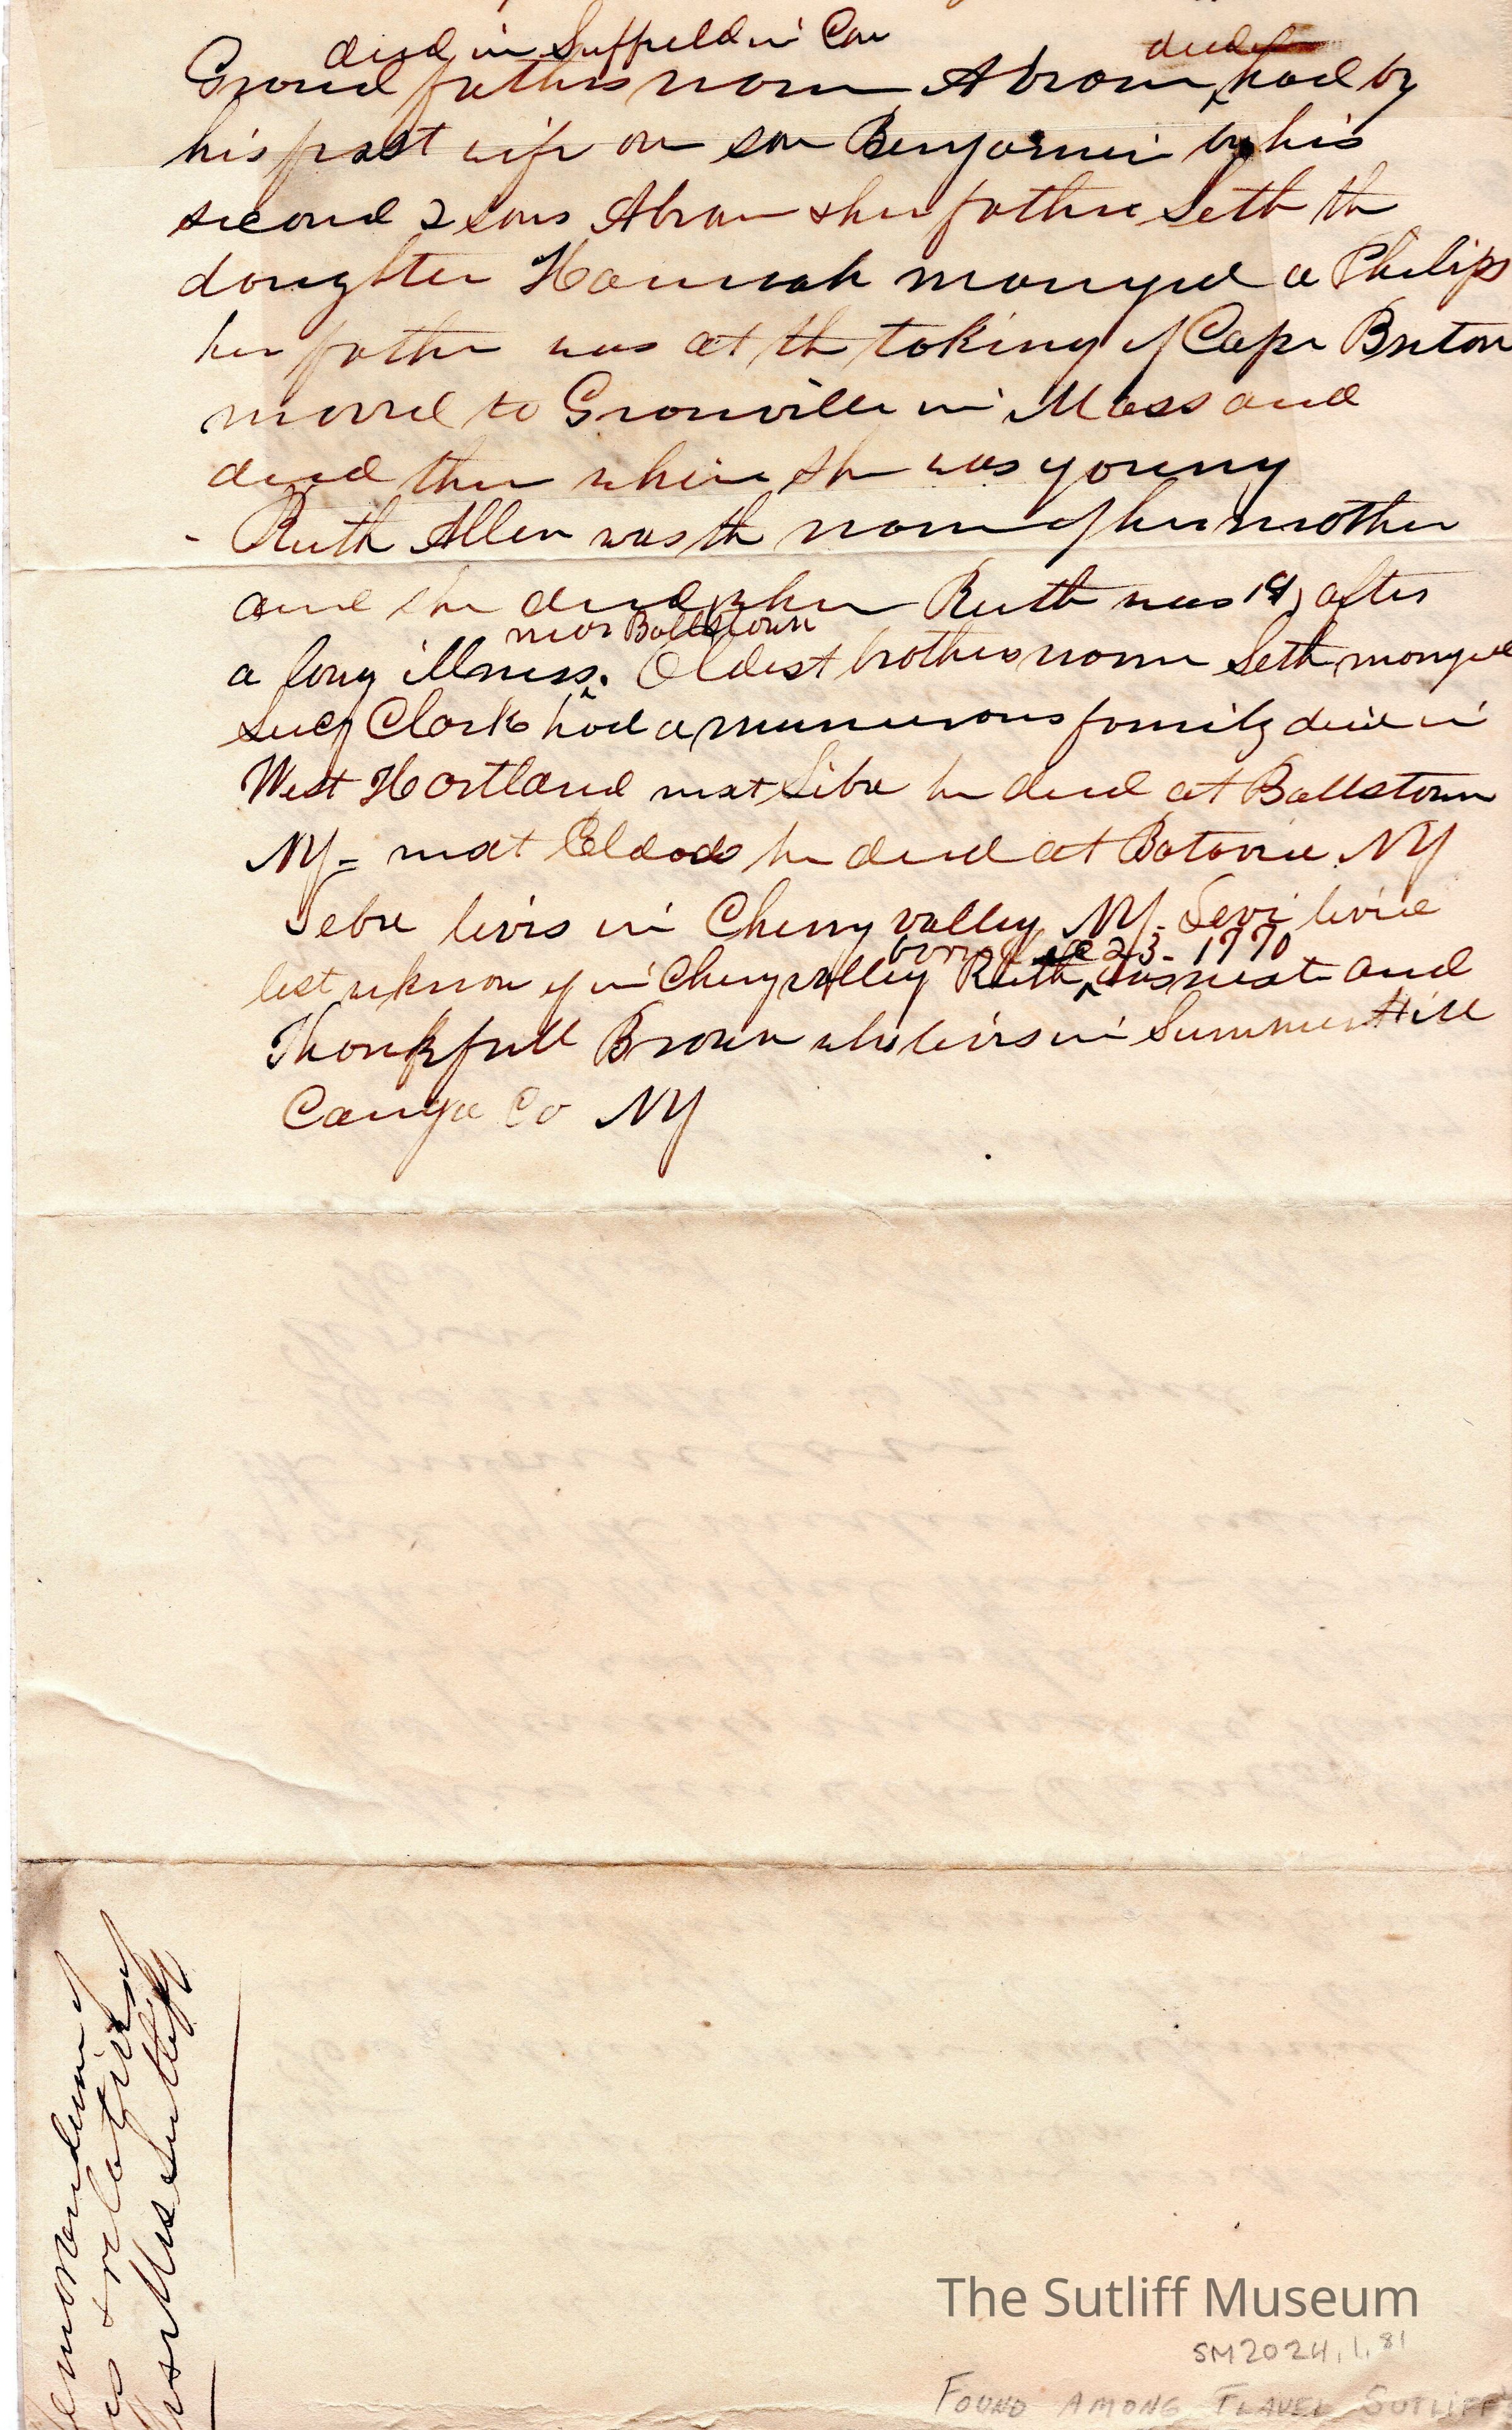 died in Suffield in Con
died
Grand fathers name Abram ^ had by
his first wife one son Benjamin by his
second 2 sons Abram & her father Seth the
daughter Hannah married a Philips
her father was at the taking of Cape Briton
moved to Granville in Mass and
died there when she was young
- Ruth Allen was the name of her mother
and she died when Ruth was 19, after
near Ballstown
a long illness. ^ Oldest brothers name Seth married
Lucy Clark had a numerous family died in
West Hartland next he died at Ballstown
NY - next he died at Batavia NY
lives in Cherry valley NY - Levi lived
last we knew of in Cherry valley Ruth ^ was next and
born 23 - 1770
Thankfull Brown who lives in Summer Hill
Cayuga Co NY
emorandum of
& relatives of
Mrs Sutliff
The Sutliff Museum
SM2024.1.81
FOUND AMONG FLAVEL SUTLIFF